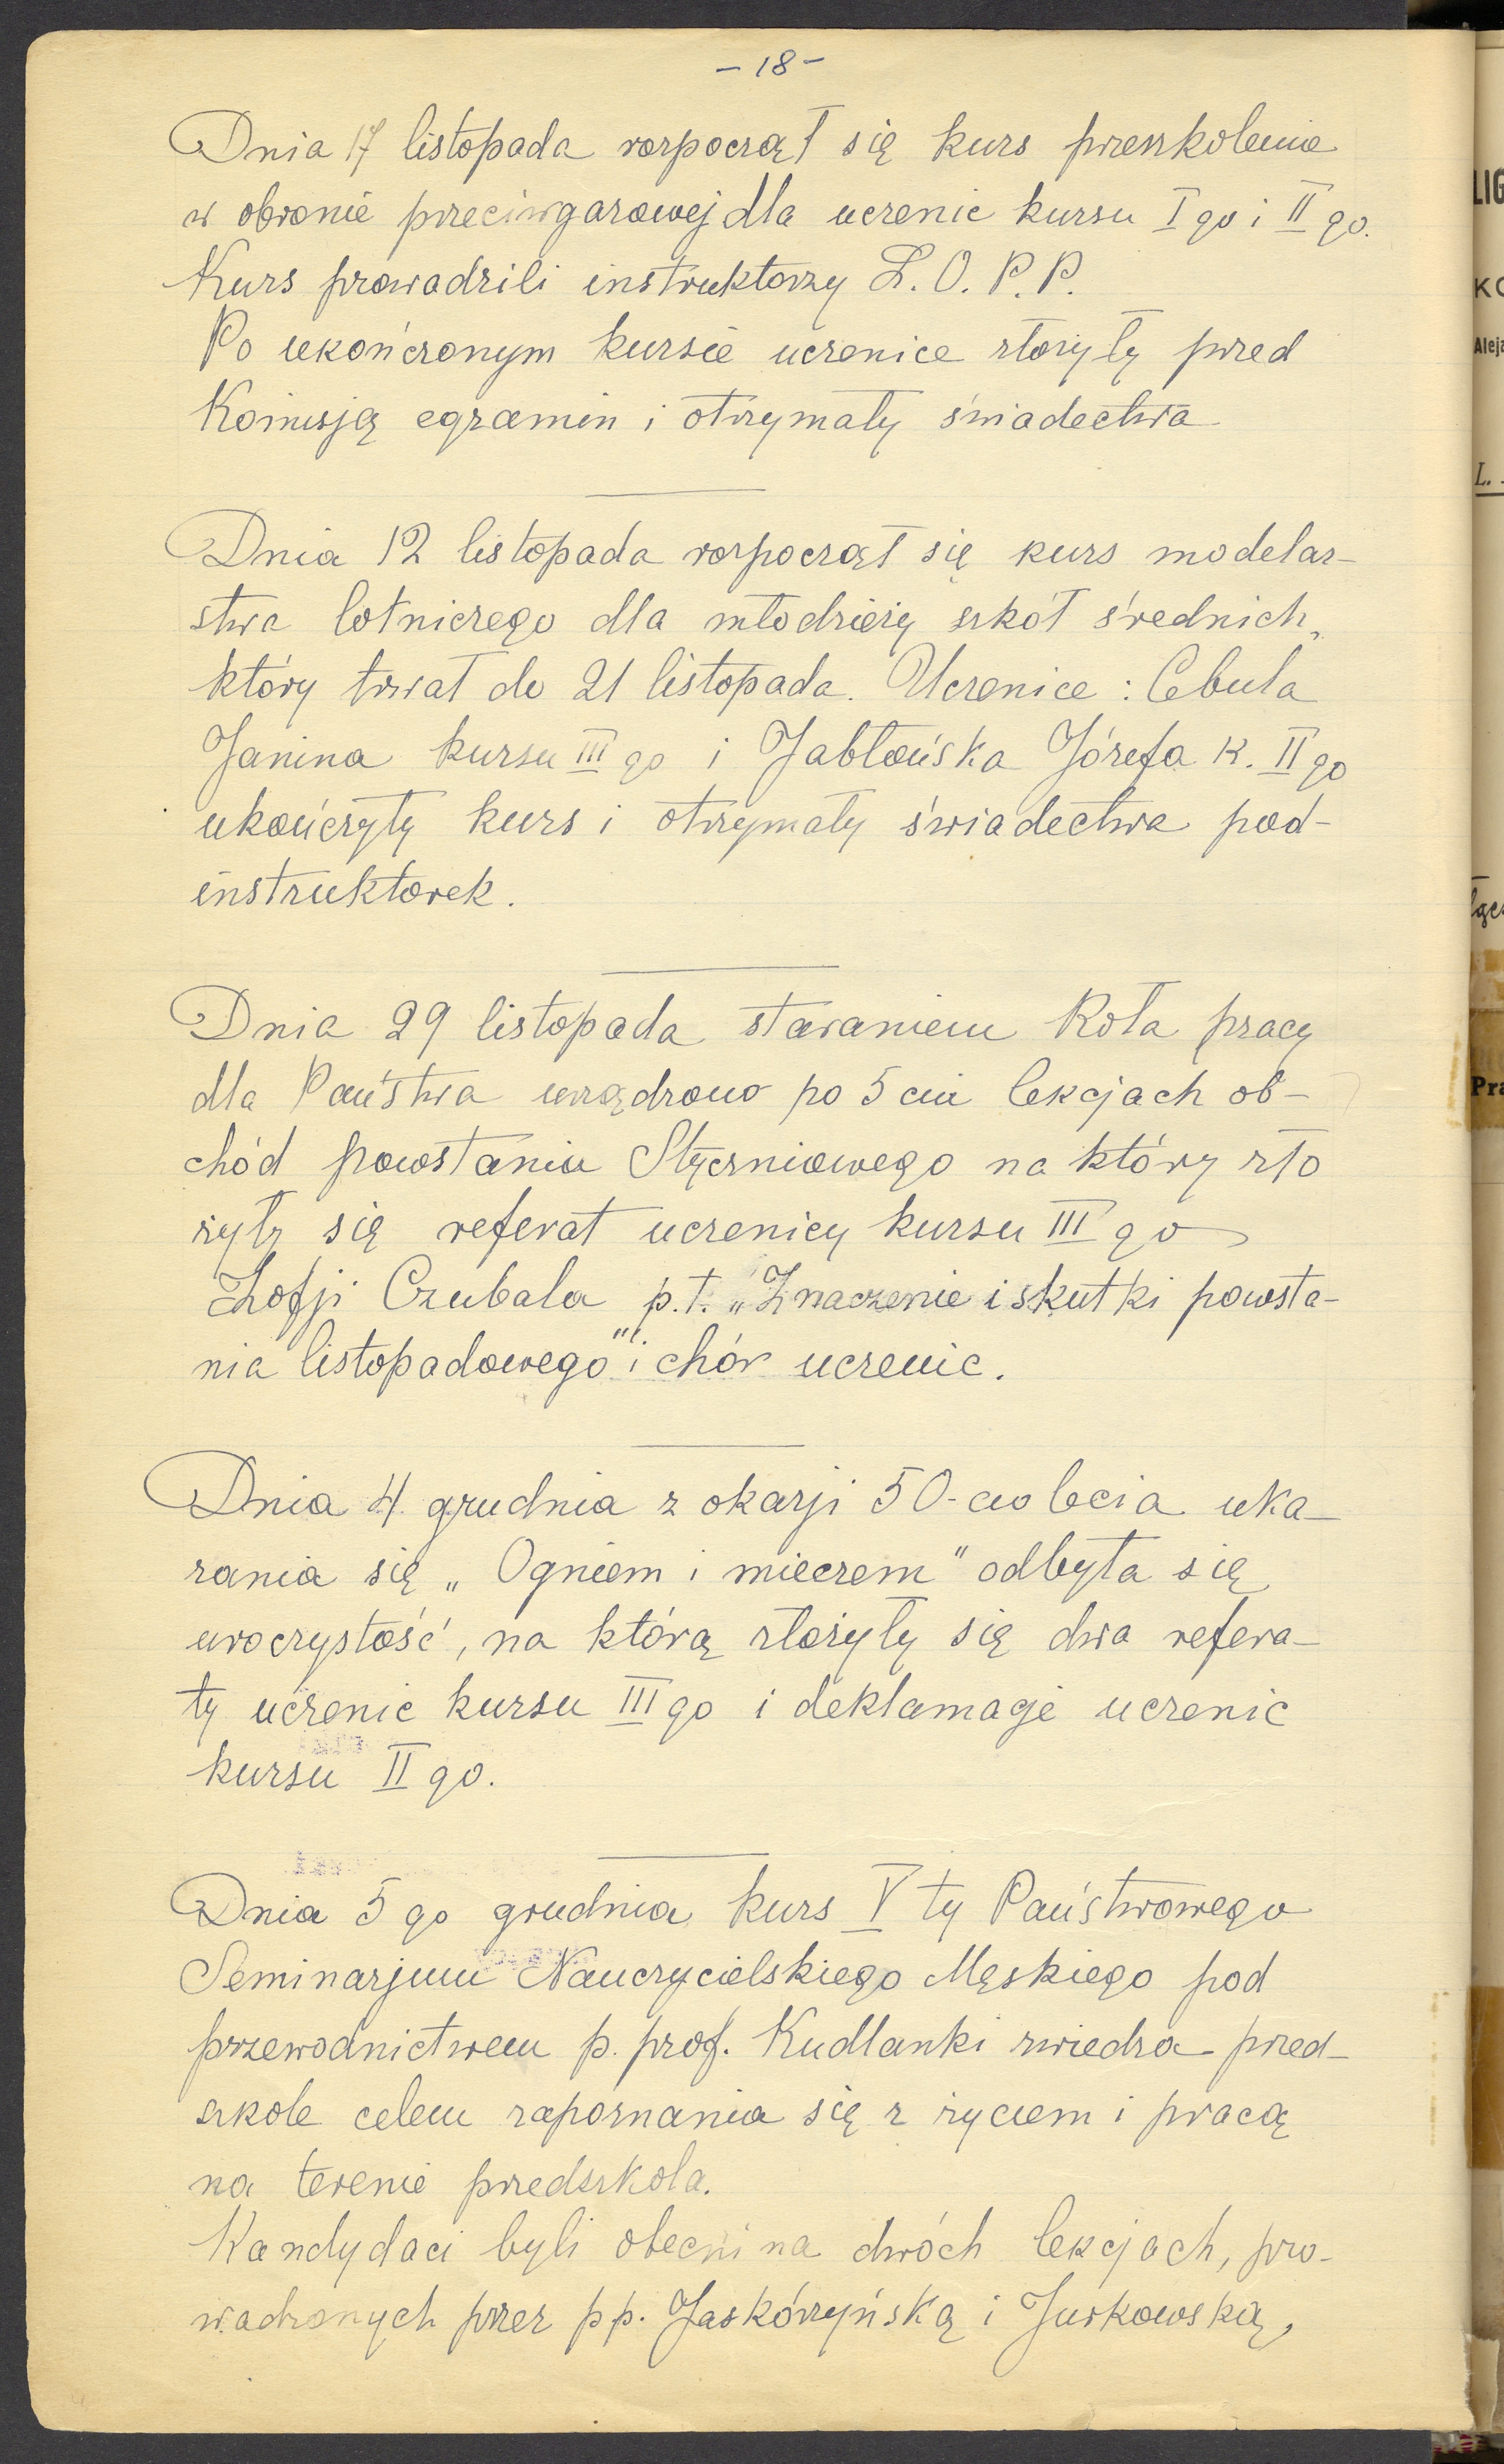 - 18 -
Dnia 17 listopada rozpoczął się kurs przeszkolenia
w obronie przeciwgazowej dla uczenic kursu I go i II go.
Kurs prowadzili instruktorzy L. O. P. P.
Po ukończonym kursie uczenice złożyły przed
Komisją egzamin i otrzymały świadectwa
Dnia 12 listopada rozpoczął się kurs modelar-
stwa lotniczego dla młodzieży szkół średnich,
który trwał do 21 listopada. Uczenice : Cebula
Janina kursu III go i Jabłońska Józefa k. II go
ukończyły kurs i otrzymały świadectwa pod-
instruktorek.
Dnia 29 listopada staraniem Koła pracy
dla Państwa urządzono po 5 ciu lekcjach ob-
chód powstania Styczniowego na który zło
żyły się referat uczenicy kursu III go
Zofji Czubala p.t. „Znaczenie i skutki powsta-
nia listopadowego" i chór uczenic.
Dnia 4 grudnia z okazji 50-cio lecia uka-
zania się „Ogniem i mieczem" odbyła się
uroczystość, na którą złożyły się dwa refera-
ty uczenic kursu III go i deklamacje uczenic
kursu II go.
Dnia 5 go grudnia kurs V ty Państwowego
Seminarjum Nauczycielskiego Męskiego pod
przewodnictwem p. prof. Kudlanki zwiedza przed-
szkole celem zapoznania się z życiem i pracą
na terenie przedszkola.
Kandydaci byli obecni na dwóch lekcjach, pro-
wadzonych przez pp. Jaskórzyńską i Jurkowską,
LIG
KO
Aleja
L.
Pra